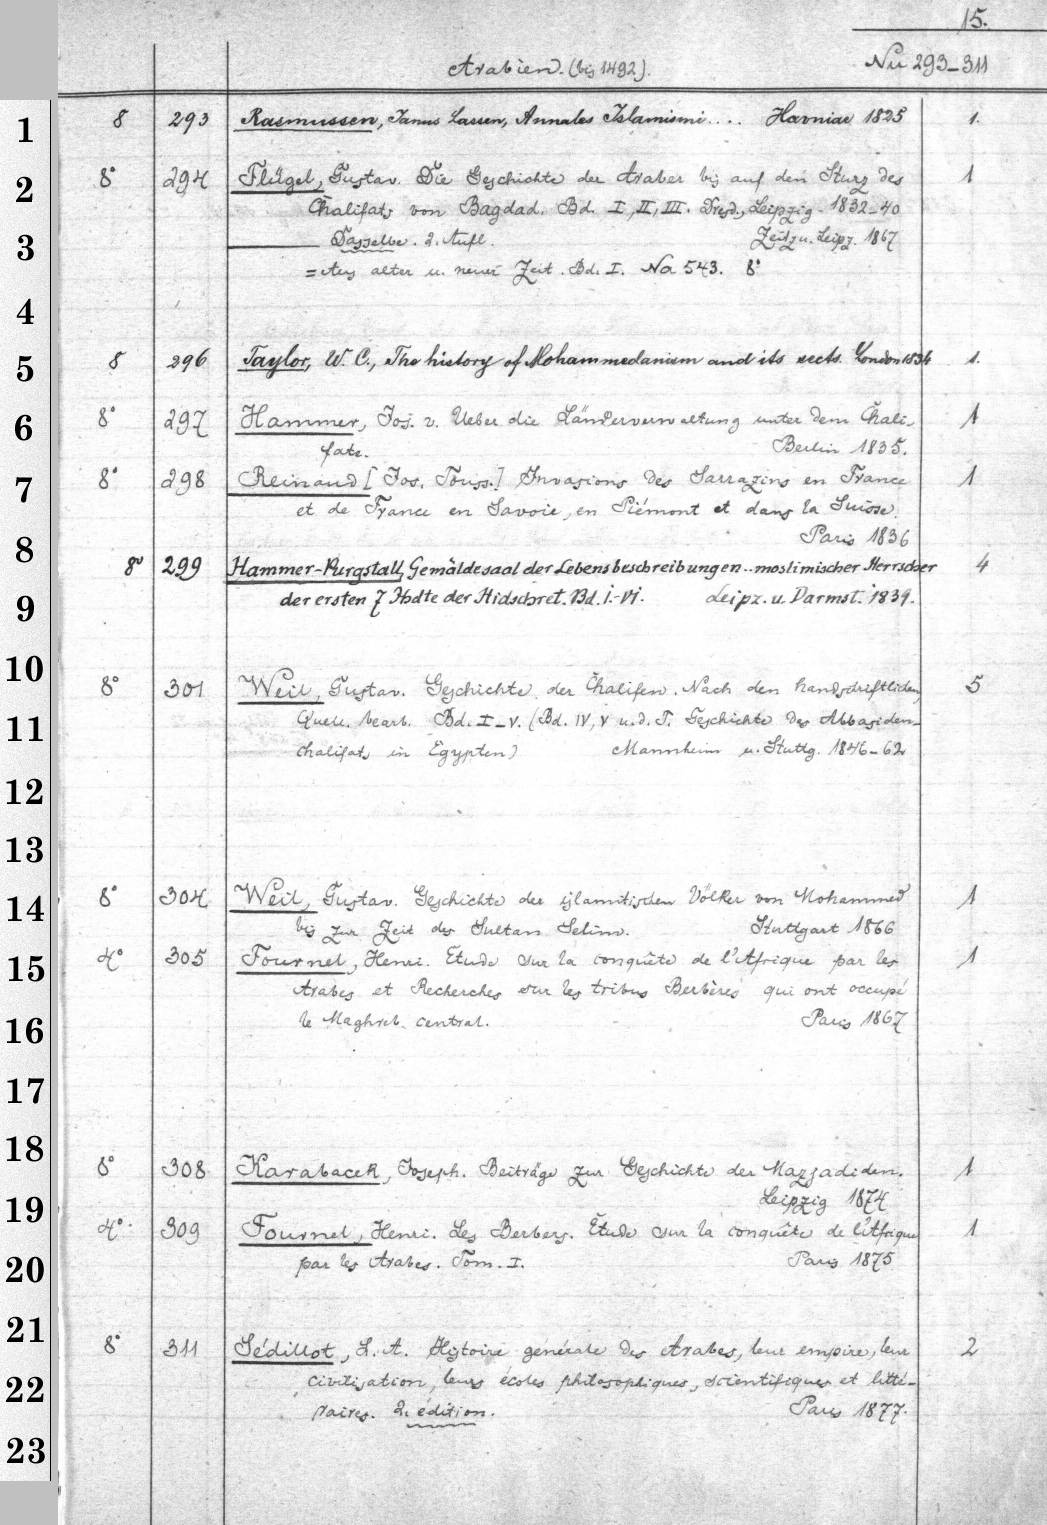 15.
Arabien. (bis 1492).
Nu 293-311
1 8 293 Rasmussen, Janus Lassen, Annales Islamismi.... Havniae 1825 1.
2 8° 294 Flügel, Gustav. Die Geschichte der Araber bis auf den Sturz des 1
Chalifats von Bagdad. Bd. I, II, III. Dresd., Leipzig. 1832-40
3 Dasselbe. 2. Aufl. Zeitz u. Leipz. 1867
= Aus alter u. neuer Zeit. Bd. I. Na 543. 8°
4
5 8 296 Taylor, W. C., The history of Mohammedanism and its sects. London 1834 1.
6 8° 297 Hammer, Jos. v. Ueber die Länderverwaltung unter dem Chali- 1
fate. Berlin 1835.
7 8° 298 Reinaud [Jos. Touss.] Invasions des Sarrazins en France 1
et de France en Savoie, en Piémont et dans la Suisse.
8 Paris 1836
8° 299 Hammer-Purgstall, Gemäldesaal der Lebensbeschreibungen.. moslimischer Herrscher 4
9 der ersten 7 Jhdte der Hidschret. Bd. I.-VI. Leipz. u. Darmst. 1839.
10
8° 301 Weil, Gustav. Geschichte der Chalifen. Nach den handschriftlichen 5
11 Quell. bearb. Bd. I-V. (Bd. IV, V u. d. T. Geschichte des Abbasiden-
chalifats in Egypten) Mannheim u. Stuttg. 1846-62
12
13
14 8° 304 Weil, Gustav. Geschichte der islamitischen Völker von Mohammed 1
bis zur Zeit des Sultan Selim. Stuttgart 1866
15 4° 305 Fournel, Henri. Etude sur la conquête de l'Afrique par les 1
Arabes et Recherches sur les tribus Berbères qui ont occupé
16 le Maghreb central. Paris 1867
17
18
8° 308 Karabacek, Joseph. Beiträge zur Geschichte der Mazjaditen. 1
19 Leipzig 1874
4° 309 Fournel, Henri. Les Berbers. Étude sur la conquête de l'Afrique 1
20 par les Arabes. Tom. I. Paris 1875
21
8° 311 Sédillot, L. A. Histoire générale des Arabes, leur empire, leur 2
22 civilisation, leurs écoles philosophiques, scientifiques et litté-
raires. 2. édition. Paris 1877.
23